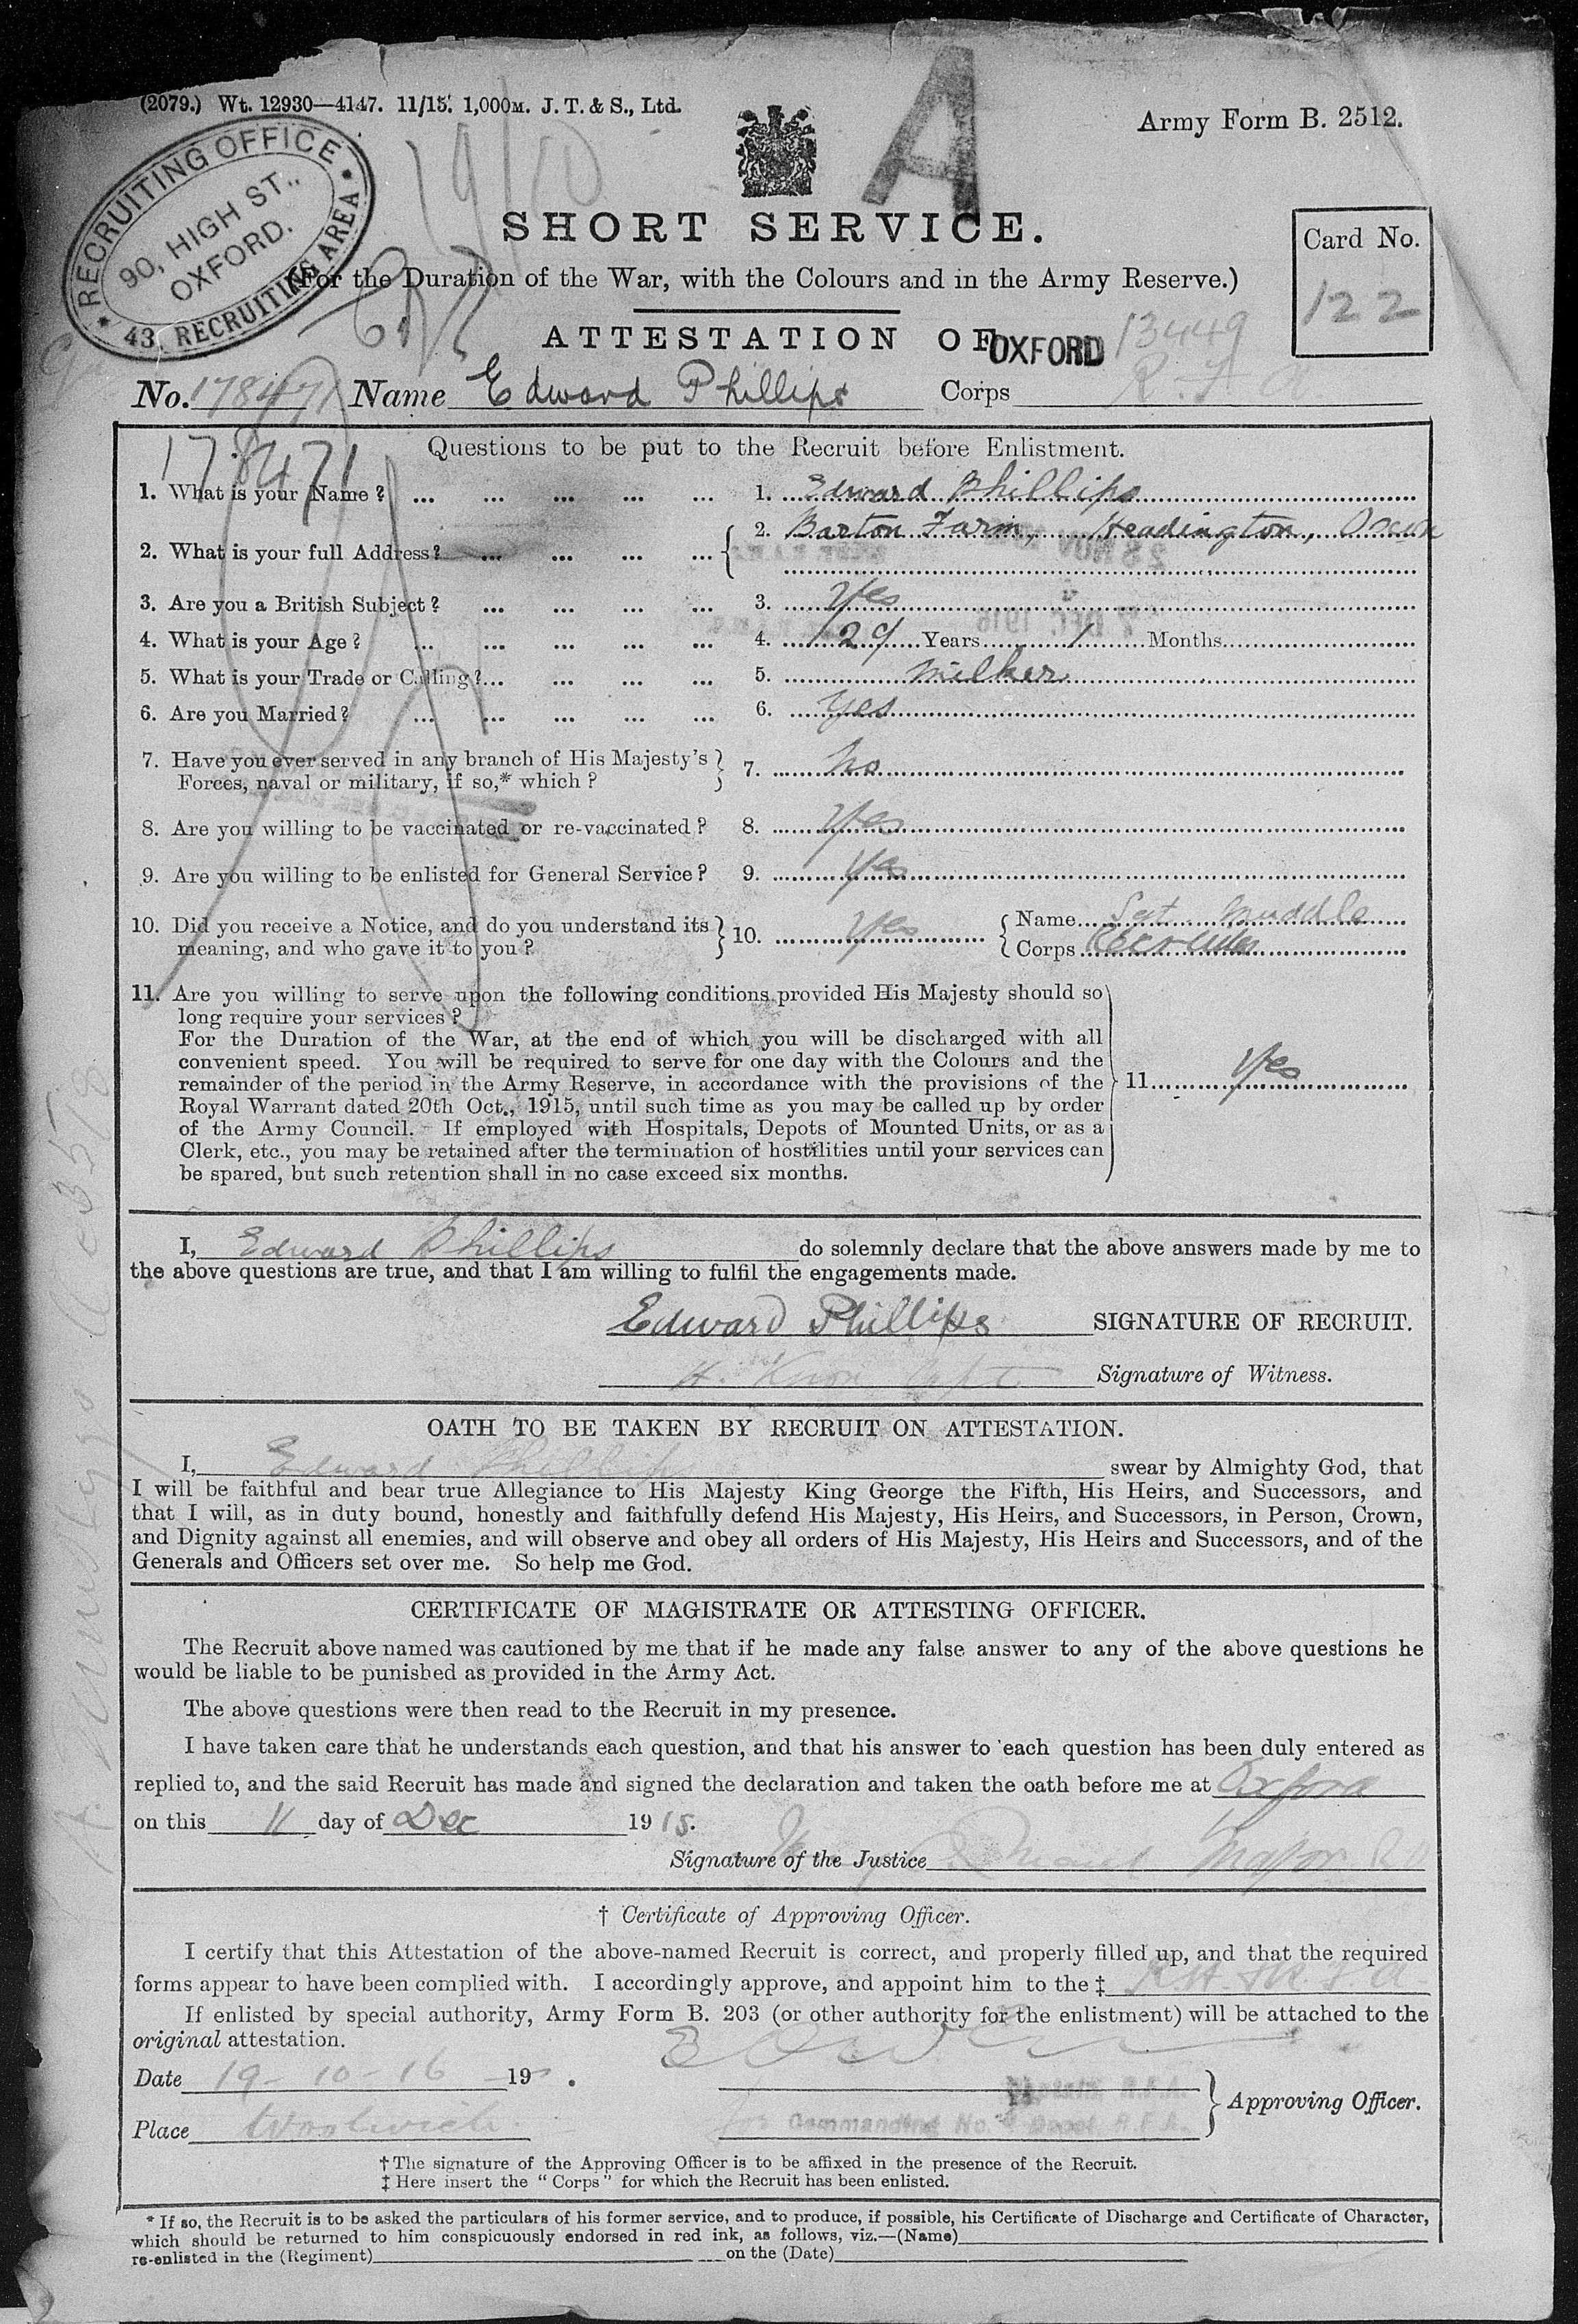 (2079.) Wt. 12930—4147. 11/15. 1,000M. J. T. & S., Ltd.
Army Form B. 2512.
RECRUITING OFFICE
90, HIGH ST.,
OXFORD.
43, RECRUITING AREA
A
SHORT SERVICE.
Card No.
122
(For the Duration of the War, with the Colours and in the Army Reserve.)
ATTESTATION OF
OXFORD 13449
No. 178471 Name Edward Phillips Corps R. F. A
178471
Questions to be put to the Recruit before Enlistment.
1. What is your Name? ... ... ... ... ... 1. Edward Phillips
2. What is your full Address? ... ... ... ... 2. Barton Farm, Headington, Oxon
3. Are you a British Subject? ... ... ... ... 3. Yes
4. What is your Age? ... ... ... ... ... 4. 29 Years 1 Months
5. What is your Trade or Calling? ... ... ... ... 5. Milker
6. Are you Married? ... ... ... ... ... 6. Yes
7. Have you ever served in any branch of His Majesty's
Forces, naval or military, if so,* which? 7. No
8. Are you willing to be vaccinated or re-vaccinated? 8. Yes
9. Are you willing to be enlisted for General Service? 9. Yes
10. Did you receive a Notice, and do you understand its
meaning, and who gave it to you? 10. Yes Name Sgt. Muddle
Corps
11. Are you willing to serve upon the following conditions provided His Majesty should so
long require your services?
For the Duration of the War, at the end of which you will be discharged with all
convenient speed. You will be required to serve for one day with the Colours and the
remainder of the period in the Army Reserve, in accordance with the provisions of the 11. Yes
Royal Warrant dated 20th Oct., 1915, until such time as you may be called up by order
of the Army Council. If employed with Hospitals, Depots of Mounted Units, or as a
Clerk, etc., you may be retained after the termination of hostilities until your services can
be spared, but such retention shall in no case exceed six months.
I, Edward Phillips do solemnly declare that the above answers made by me to
the above questions are true, and that I am willing to fulfil the engagements made.
Edward Phillips SIGNATURE OF RECRUIT.
H. Capt Signature of Witness.
OATH TO BE TAKEN BY RECRUIT ON ATTESTATION.
I, Edward Phillips swear by Almighty God, that
I will be faithful and bear true Allegiance to His Majesty King George the Fifth, His Heirs, and Successors, and
that I will, as in duty bound, honestly and faithfully defend His Majesty, His Heirs, and Successors, in Person, Crown,
and Dignity against all enemies, and will observe and obey all orders of His Majesty, His Heirs and Successors, and of the
Generals and Officers set over me. So help me God.
CERTIFICATE OF MAGISTRATE OR ATTESTING OFFICER.
The Recruit above named was cautioned by me that if he made any false answer to any of the above questions he
would be liable to be punished as provided in the Army Act.
The above questions were then read to the Recruit in my presence.
I have taken care that he understands each question, and that his answer to each question has been duly entered as
replied to, and the said Recruit has made and signed the declaration and taken the oath before me at Oxford
on this 11 day of Dec 1915.
Signature of the Justice Major
† Certificate of Approving Officer.
I certify that this Attestation of the above-named Recruit is correct, and properly filled up, and that the required
forms appear to have been complied with. I accordingly approve, and appoint him to the ‡ R.H. & R. F. A.
If enlisted by special authority, Army Form B. 203 (or other authority for the enlistment) will be attached to the
original attestation.
Date 19-10-16 19 .
Captain R.F.A.
Approving Officer.
Place Woolwich
for Commanding No. Depot R.F.A.
† The signature of the Approving Officer is to be affixed in the presence of the Recruit.
‡ Here insert the "Corps" for which the Recruit has been enlisted.
* If so, the Recruit is to be asked the particulars of his former service, and to produce, if possible, his Certificate of Discharge and Certificate of Character,
which should be returned to him conspicuously endorsed in red ink, as follows, viz.—(Name)
re-enlisted in the (Regiment) on the (Date)